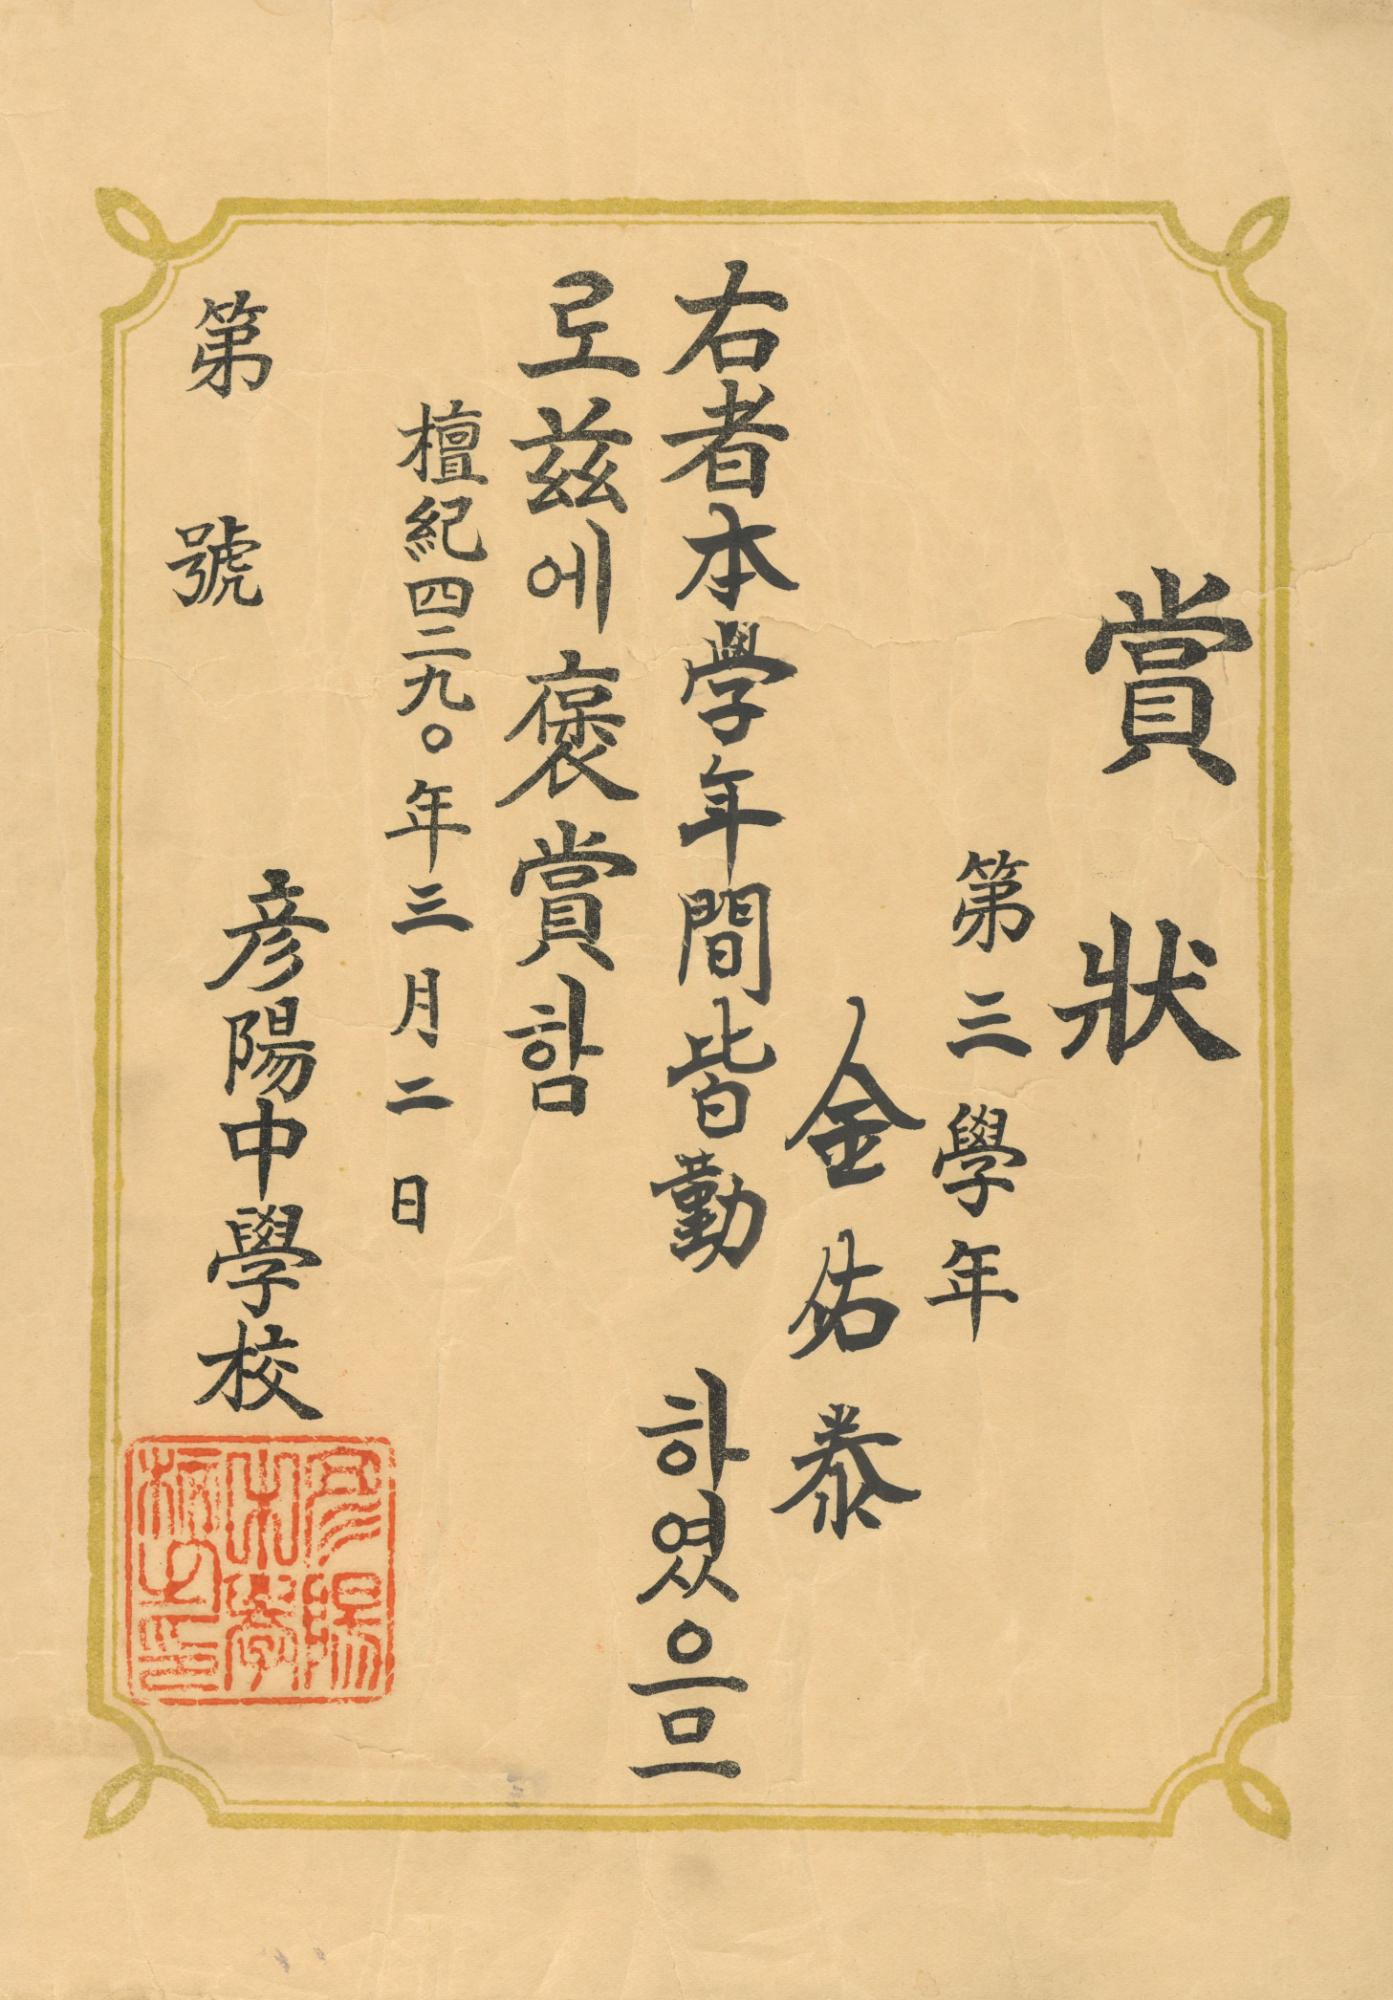 賞狀
第三學年
金佑泰
右者本學年間皆勤 하였으므
로玆에褒賞함
檀紀四二九〇年三月二日
第 號
彦陽中學校
彦陽
中學
校之印